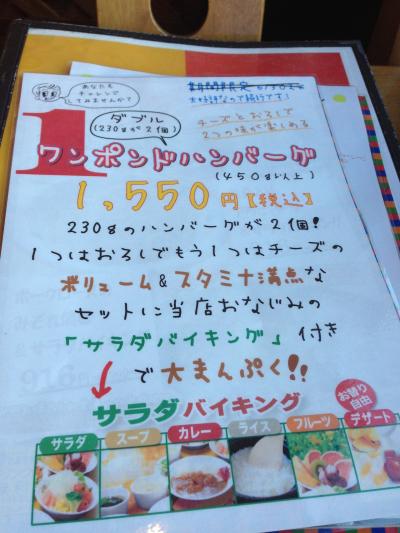 あなたも
チャレンジ
してみませんか?
期間限定 6/30まで
大好評なので続行です!
チーズとおろしで
2つの味が楽しめる
ダブル
(230gが2個)
1
ワンポンドハンバーグ
(450g以上)
1,550円【税込】
230gのハンバーグが2個!
1つはおろしでもう1つはチーズの
ボリューム&スタミナ満点な
セットに当店おなじみの
「サラダバイキング」付き
で大まんぷく!!
サラダバイキング
お替り
自由
サラダ
スープ
カレー
ライス
フルーツ
デザート